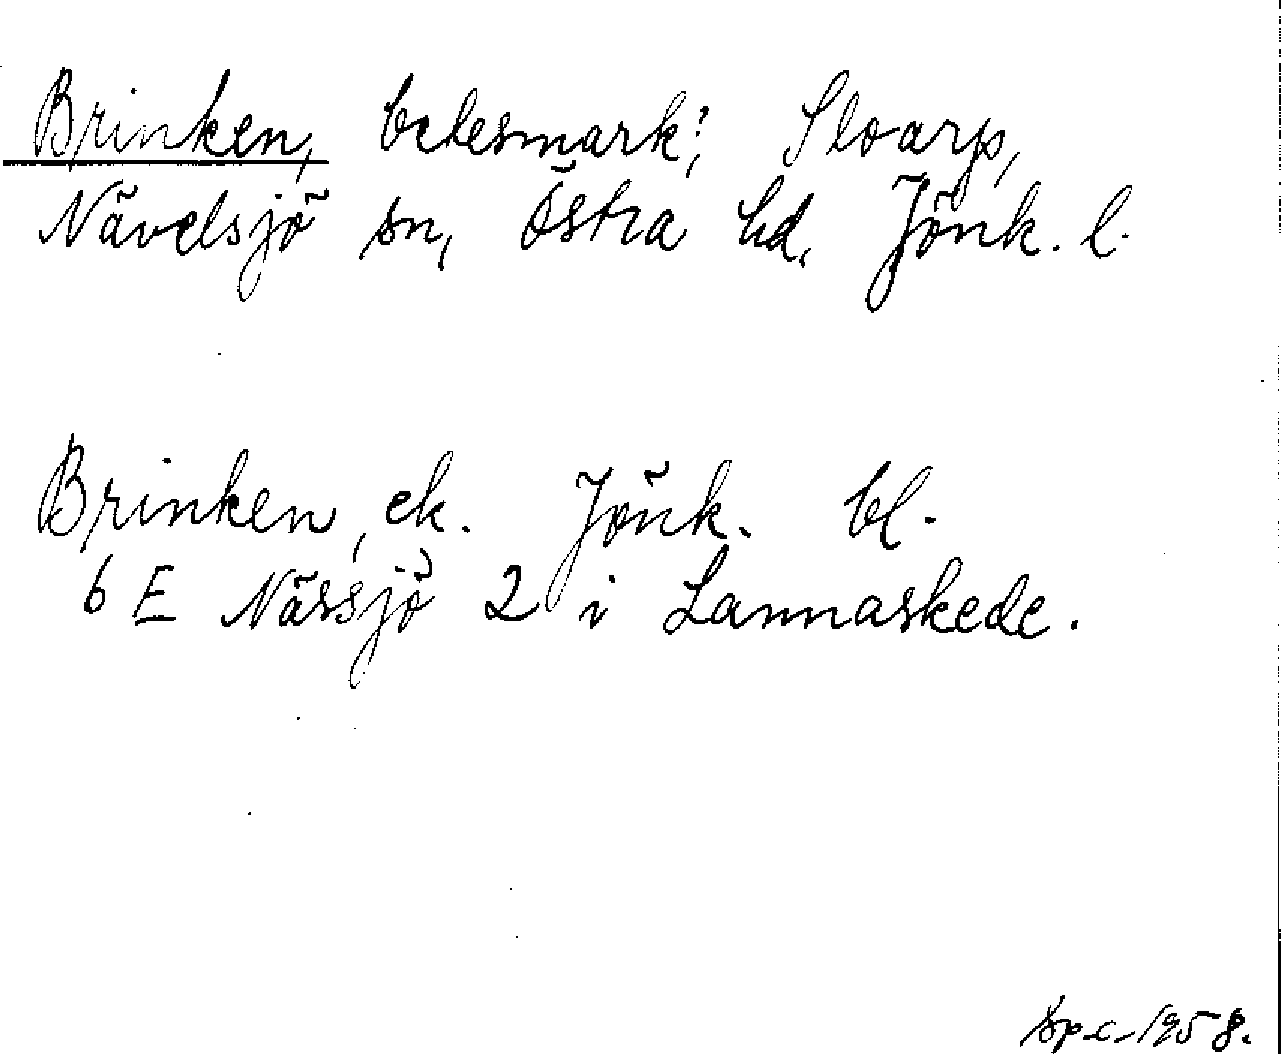 Brinken, betesmark; Sloarp,
Nävelsjö sn, Östra hd. Jönk. l.
Brinken, ek. Jönk. bl.
6 E Nässjö 2 i Lannaskede.
1958.